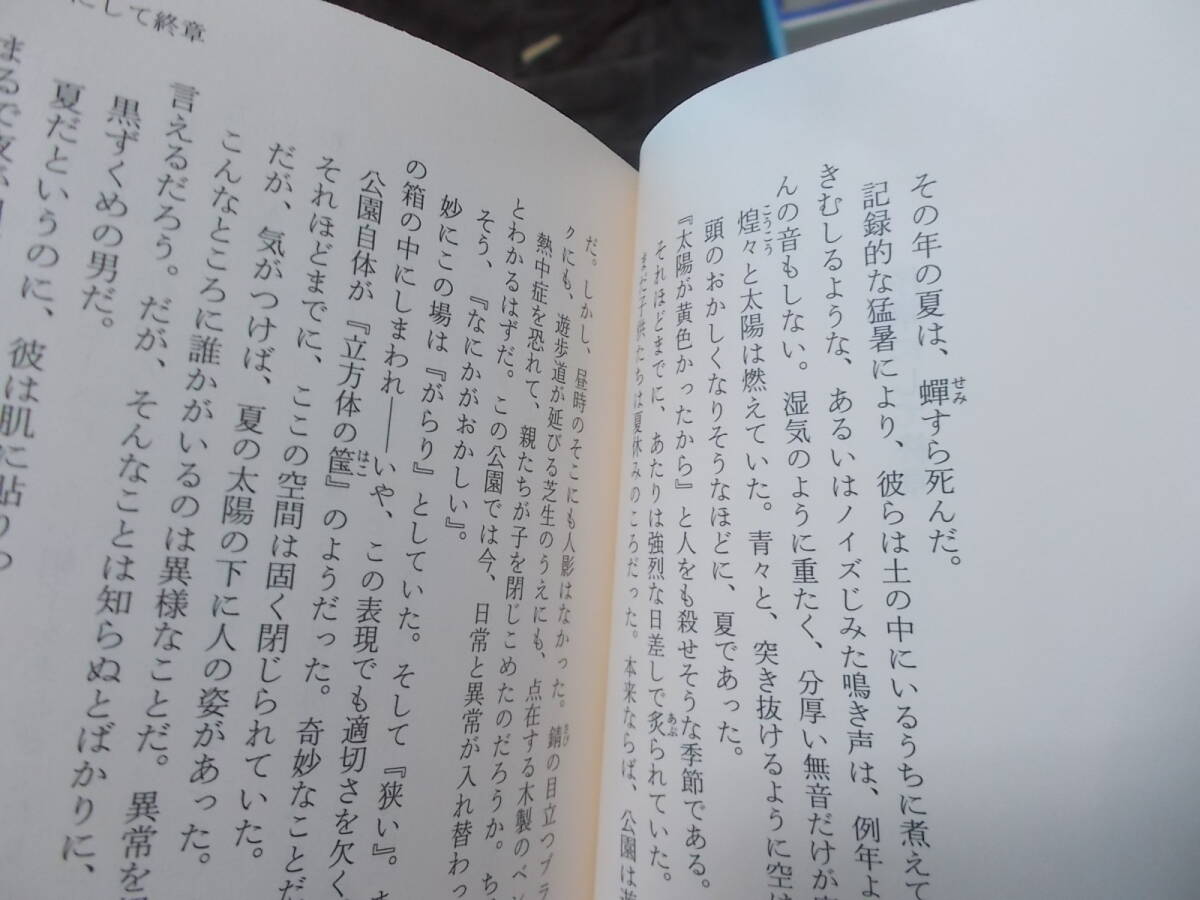 その年の夏は、蟬すら死んだ。
記録的な猛暑により、彼らは土の中にいるうちに煮えて
きむしるような、あるいはノイズじみた鳴き声は、例年よ
んの音もしない。湿気のように重たく、分厚い無音だけが
煌々と太陽は燃えていた。青々と、突き抜けるように空は
頭のおかしくなりそうなほどに、夏であった。
『太陽が黄色かったから』と人をも殺せそうな季節である。
それほどまでに、あたりは強烈な日差しで炙られていた。
まだ子供たちは夏休みのころだった。本来ならば、公園は
だ。しかし、昼時のそこにも人影はなかった。錆の目立つブラ
クにも、遊歩道が延びる芝生のうえにも、点在する木製のベ
熱中症を恐れて、親たちが子を閉じこめたのだろうか。ち
とわかるはずだ。この公園では今、日常と異常が入れ替わっ
そう、『なにかがおかしい』。
妙にこの場は『がらり』としていた。そして『狭い』。
の箱の中にしまわれ――いや、この表現でも適切さを欠く
公園自体が『立方体の筐』のようだった。奇妙なことだ
それほどまでに、ここの空間は固く閉じられていた。
だが、気がつけば、夏の太陽の下に人の姿があった。
こんなところに誰かがいるのは異様なことだ。異常を
言えるだろう。だが、そんなことは知らぬとばかりに、
黒ずくめの男だ。
夏だというのに、彼は肌に貼りつ
まるで夜が
にして終章